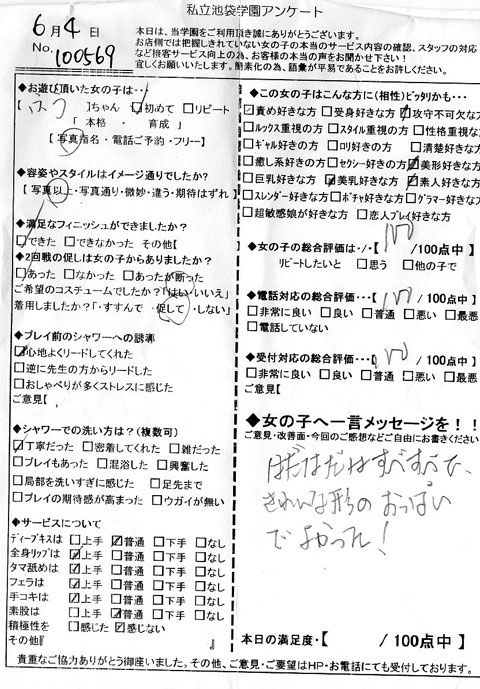 私立池袋学園アンケート
6月4日
No. 100569
本日は、当学園をご利用頂き誠にありがとうございます。
お店側では把握しきれていない女の子の本当のサービス内容の確認、スタッフの対応
など接客サービス向上の為、お客様の本当の声をお聞かせ下さい！
宜しくお願いいたします。簡素化の為、語彙が平易であることをお許しください。
◆お遊び頂いた女の子は・・・
【 】ちゃん ☑初めて □リピート
「 本格 ・ 育成 」
【 写真指名・電話ご予約・フリー】
◆容姿やスタイルはイメージ通りでしたか?
【 写真以上・写真通り・微妙・違う・期待はずれ 】
◆満足なフィニッシュができましたか?
☑できた □できなかった その他【
◆2回戦の促しは女の子からありましたか?
□あった □なかった □あったが断った
ご希望のコスチュームでしたか?「はい・いいえ」
着用しましたか?「・すすんで ・促して ・しない」
◆プレイ前のシャワーへの誘導
☑心地よくリードしてくれた
□逆に先生の方からリードした
□おしゃべりが多くストレスに感じた
ご意見【
◆シャワーでの洗い方は？（複数可）
☑丁寧だった □密着してくれた □雑だった
□プレイもあった □混浴した □興奮した
□局部を洗いすぎに感じた □足先まで
□プレイの期待感が高まった □ウガイが無い
◆サービスについて
ディープキスは □上手 ☑普通 □下手 □なし
全身リップは ☑上手 □普通 □下手 □なし
タマ舐めは ☑上手 □普通 □下手 □なし
フェラは ☑上手 □普通 □下手 □なし
手コキは ☑上手 □普通 □下手 □なし
素股は □上手 ☑普通 □下手 □なし
積極性を □感じた ☑感じない
その他『 』
◆この女の子はこんな方に（相性）ピッタリかも・・・
□責め好きな方 □受身好きな方 ☑攻守不可欠な方
□ルックス重視の方 □スタイル重視の方 □性格重視な
□ギャル好きの方 □ロリ好きの方 □清楚好きな方
□癒し系好きの方 □セクシー好きの方 ☑美形好きな方
□巨乳好きな方 ☑美乳好きな方 ☑素人好きな方
□スレンダー好きな方 □ポチャ好きな方 □グラマー好きな方
□超敏感娘が好きな方 □恋人プレイ好きな方
◆女の子の総合評価は・・【 100 /100点中 】
リピートしたいと □思う □他の子で
◆電話対応の総合評価・・・【 100 /100点中 】
□非常に良い □良い □普通 □悪い □最悪
□電話していない
◆受付対応の総合評価・・・【 100 /100点中 】
□非常に良い □良い □普通 □悪い □最悪
ご意見【
◆女の子へ一言メッセージを！！
ご意見・改善面・今回のご感想などご自由にお書きください
はだはだはすべすべで、
きれいな形のおっぱい
でよかった!
本日の満足度・【 /100点中】
貴重なご協力ありがとう御座いました。その他、ご意見・ご要望はHP・お電話にても受付しております。